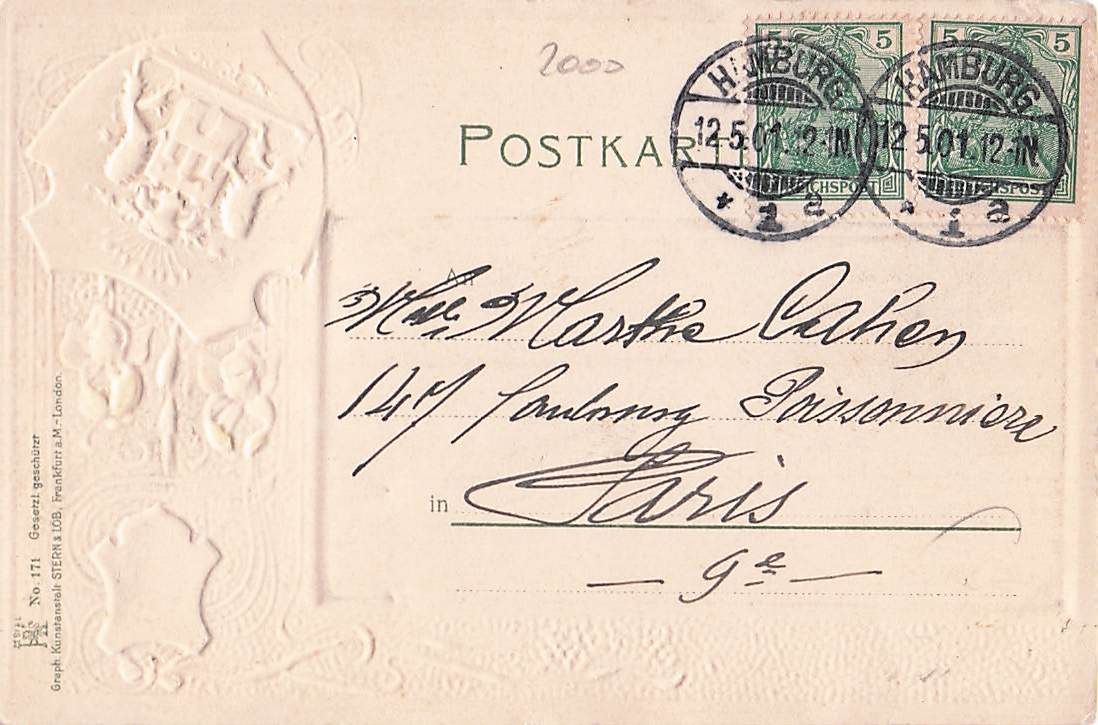 2000
POSTKART
5 5
5 5
REICHSPOST
REICHSPOST
HAMBURG
12.5.01.12-1N.
* 1 a
HAMBURG
12.5.01.12-1N.
* 1 a
An
Mlle Marthe Cahen
147 faubourg Poissonniere
in Paris
— 9e —
No. 171 Gesetzl. geschützt
Graph. Kunstanstalt STERN & LÖB, Frankfurt a.M.-London.